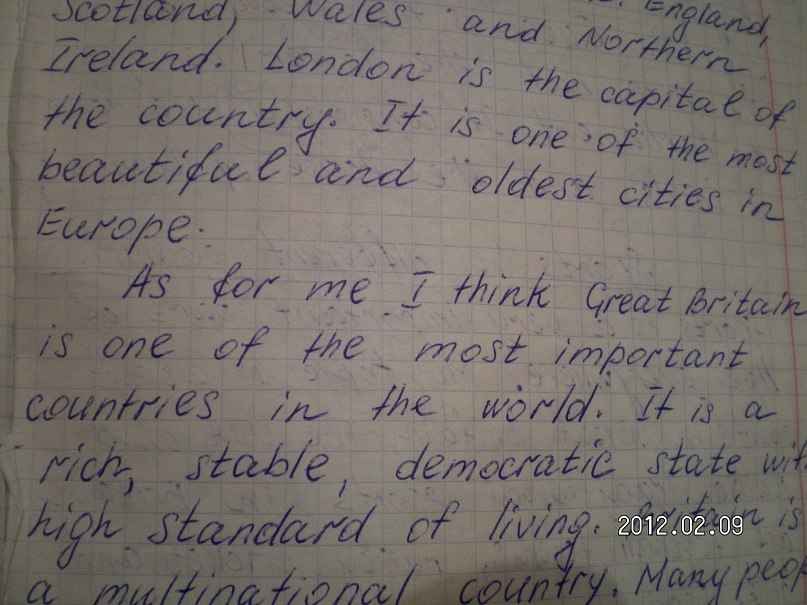 England,
Scotland, Wales and Northern
Ireland. London is the capital of
the country. It is one of the most
beautiful and oldest cities in
Europe.
As for me I think Great Britain
is one of the most important
countries in the world. It is a
rich, stable, democratic state with
high standard of living. Britain is
a multinational country. Many peop
2012.02.09